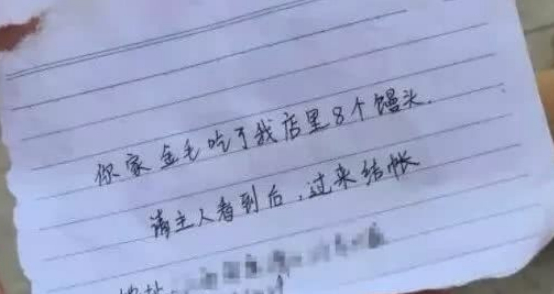 你家金毛吃了我店里8个馒头.
请主人看到后,过来结帐
地址